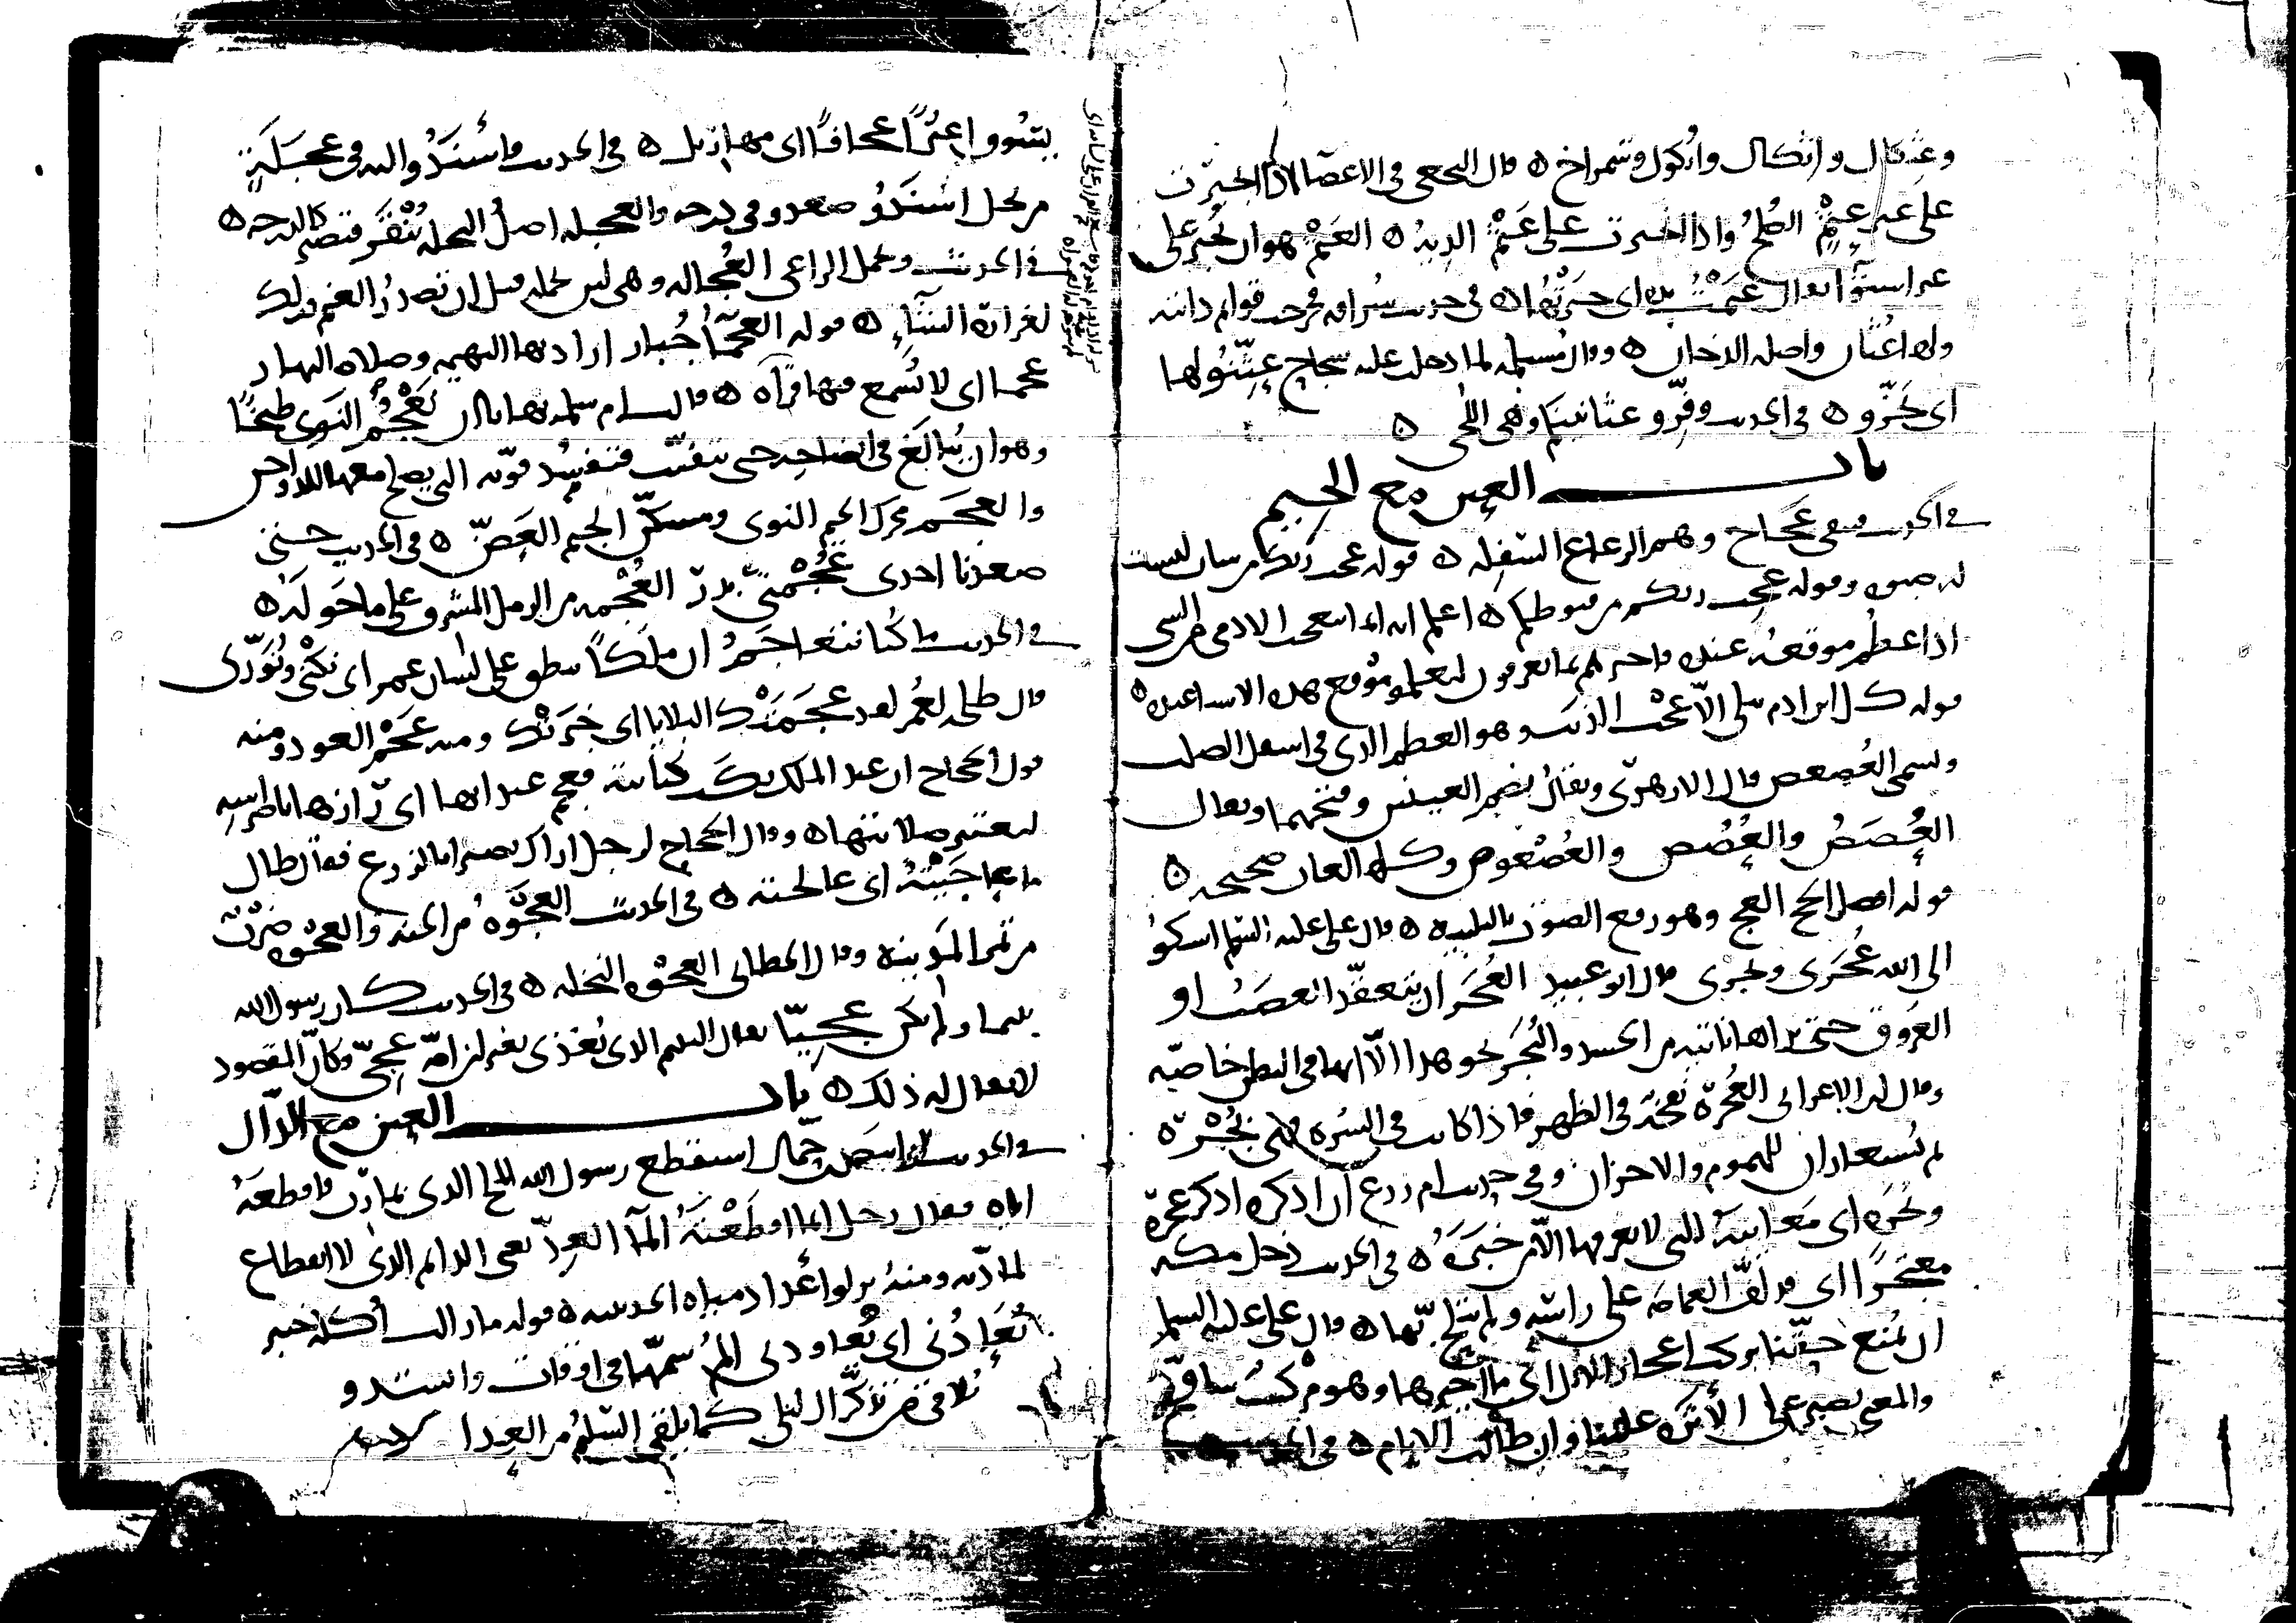 وعثكال واثكال واثكول وشمراخ ه قال النخعي في الاعضا اذا انجبرت
على غير عثم الصلح واذا انجبرت على عثم الدية ه العثم هو ان تجبر على
غير استوآ يقال عثمت يده اي جبرتها ه في حديث سراقه فخرجت قوائم دابته
وله عثان واصله الدخان ه وقال مسيلمه لما دخل عليه سجاح عثنوا لها
اي بخروا ه في الحديث وفروا عثانينكم وهي اللحى ه
باب العين مع الجيم
في الحديث فيبقى عجاج وهم الرعاع السفله ه قوله عجب ربك من شاب ليست
له صبوه وقوله عجب ربكم من قنوطكم ه اعلم انه انما يتعجب الادمي من الشي
اذا عظم موقعه عنده فاخبرهم بما يعرفون ليعلموا موقع هذه الاشيا عنده ه
قوله كل ابن ادم يبلى الا عجب الذنب وهو العظم الذي في اسفل الصلب
ويسمى العصعص قال الازهري ويقال بضم العينين وفتحهما ويقال
العصص والعصص والعصعوص وكلها لغات صحيحه ه
قوله افضل الحج العج وهو رفع الصوت بالتلبيه ه قال علي عليه السلم اشكوا
الى الله عجري وبجري قال ابو عبيد العجر ان يتعقد العصب او
العروق حتى تراها ناتيه من الجسد والبجر نحو هذا الا انها في البطن خاصه
وقال ابن الاعرابي العجرة نفخة في الظهر فاذا كانت في السره فهي بجرة
ثم يستعاران للهموم والاحزان وفي حديث ام زرع ان اذكره اذكر عجره
وبجره اي معايبه التي لا يعرفها الا من خبره ه في الحديث دخل مكه
معتجرا اي قد لف العمامه على راسه ولم يتلح بها ه قال علي عليه السلم
ان نمنع حقنا نركب اعجاز الابل اي مآخيرها وهو مركب شاق
والمعنى نصبر على الاثره علينا وان طالت الايام ه في الحديث
يتسوقوا اعنزا عجافا اي مهازيل ه في الحديث فاسندوا اليه في عجلة
من نخل اسندوا صعدوا في درجه والعجله اصل النخله تنقر فتصير كالدرجه ه
في الحديث ويحمل الراعي العجاله وهي لبن يحمله قبل ان تصدر الغنم وذلك
لغزارة الشتاء ه قوله العجمآ جبار اراد بها البهيمه وصلاه النهار
عجما اي لا تسمع فيها قرآه ه قالت ام سلمه نهانا ان نعجم النوى طبخا
وهو ان يبالغ في انضاجه حتى يتفتت فتفسد قوته التي يصلح معها للدواجن
والعجم محرك الجيم النوى ومسكن الجيم العض ه في الحديث حتى
صعدنا احدى عجمتي بدر العجمه من الرمل المشرف على ما حوله ه
في الحديث ما كنا نتعاجم ان ملكا ينطق على لسان عمر اي نكني ونوري
قال طلحه لعمر لقد عجمتك البلايا اي خبرتك ومنه عجم العود ومنه
قول الحجاج ان عبد الملك نكت كنانته فعجم عيدانها اي رازها باضراسه
ليعتبر صلابتها ه وقال الحجاج لرجل اراك بصيرا بالزرع فقال طال
ما عاجيته اي عالجته ه في الحديث العجوه من الجنه والعجوه ضرب
من تمر المدينه وقال الخطابي العجوه النخله ه في الحديث كان رسول الله
يتيما ولم يكن عجيا يقال اليتيم الذي يغذى بغير لبن امه عجي وكان المقصود
لا يقال له ذلك ه باب العين مع الدال
في الحديث ان ابيض بن حمال استقطع رسول الله الملح الذي بمارب فاقطعه
اياه فقال رجل انما اقطعته المآ العد يعني الدايم الذي لا انقطاع
لمادته ومنه نزلوا اعداد مياه الحديبيه ه قوله ما زالت اكله خيبر
تعادني اي تعاودني الم سمها في اوقات وانشدوا
تلاقي من تذكر ال ليلى كما يلقى السليم من العدا